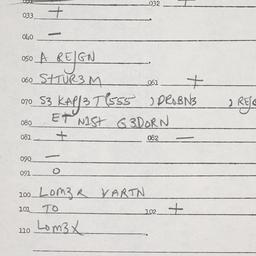 032 +
033 +
040 —
050 A REJGN
060 SHTUR3M 061 +
070 S3 KAP/3 T(555 ) DROBN3 ) REJG
080 ET NIST G3DORN
081 + 082 —
090 —
091 0
100 LOM3R VARTN
101 TO 102 +
110 LOM3X